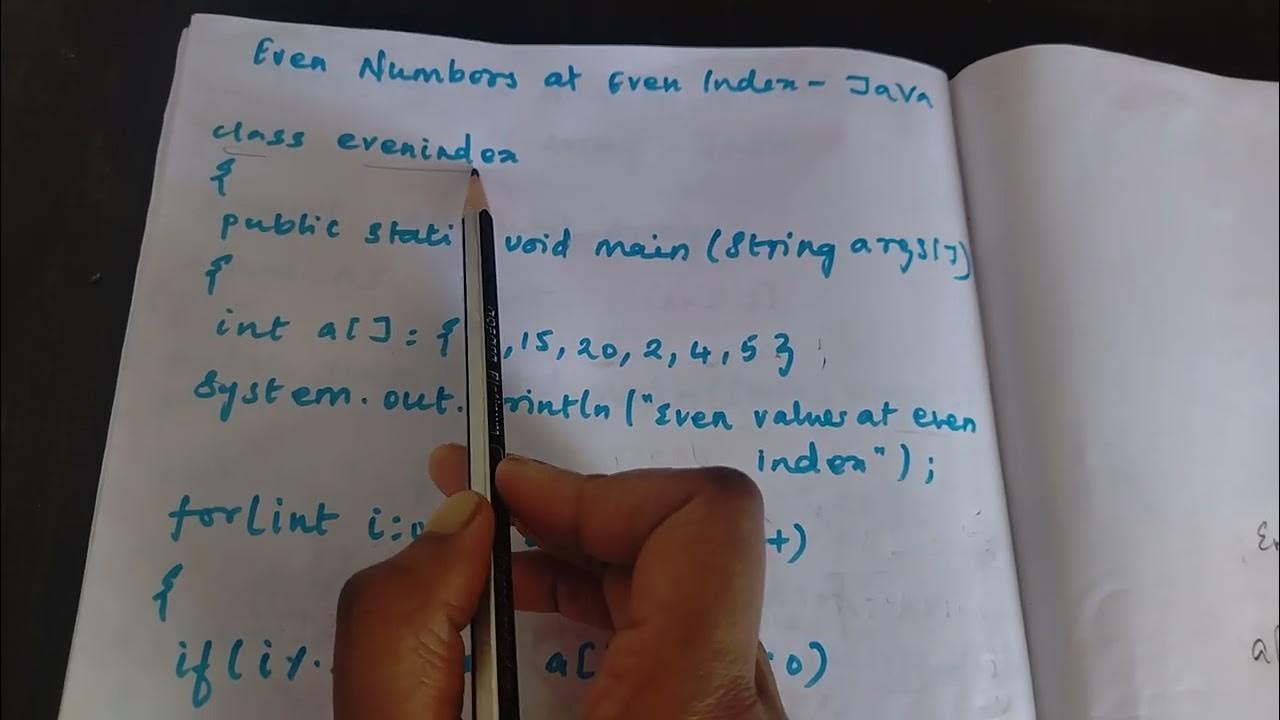 Even Numbers at Even Index - Java
class evenindex
{
public stati void main (String args[])
{
int a[] = { ,15, 20, 2, 4, 5 } ;
System.out. rintln ("Even values at even
index");
for(int i=0 +)
{
if(i%. a[ 0)
a[